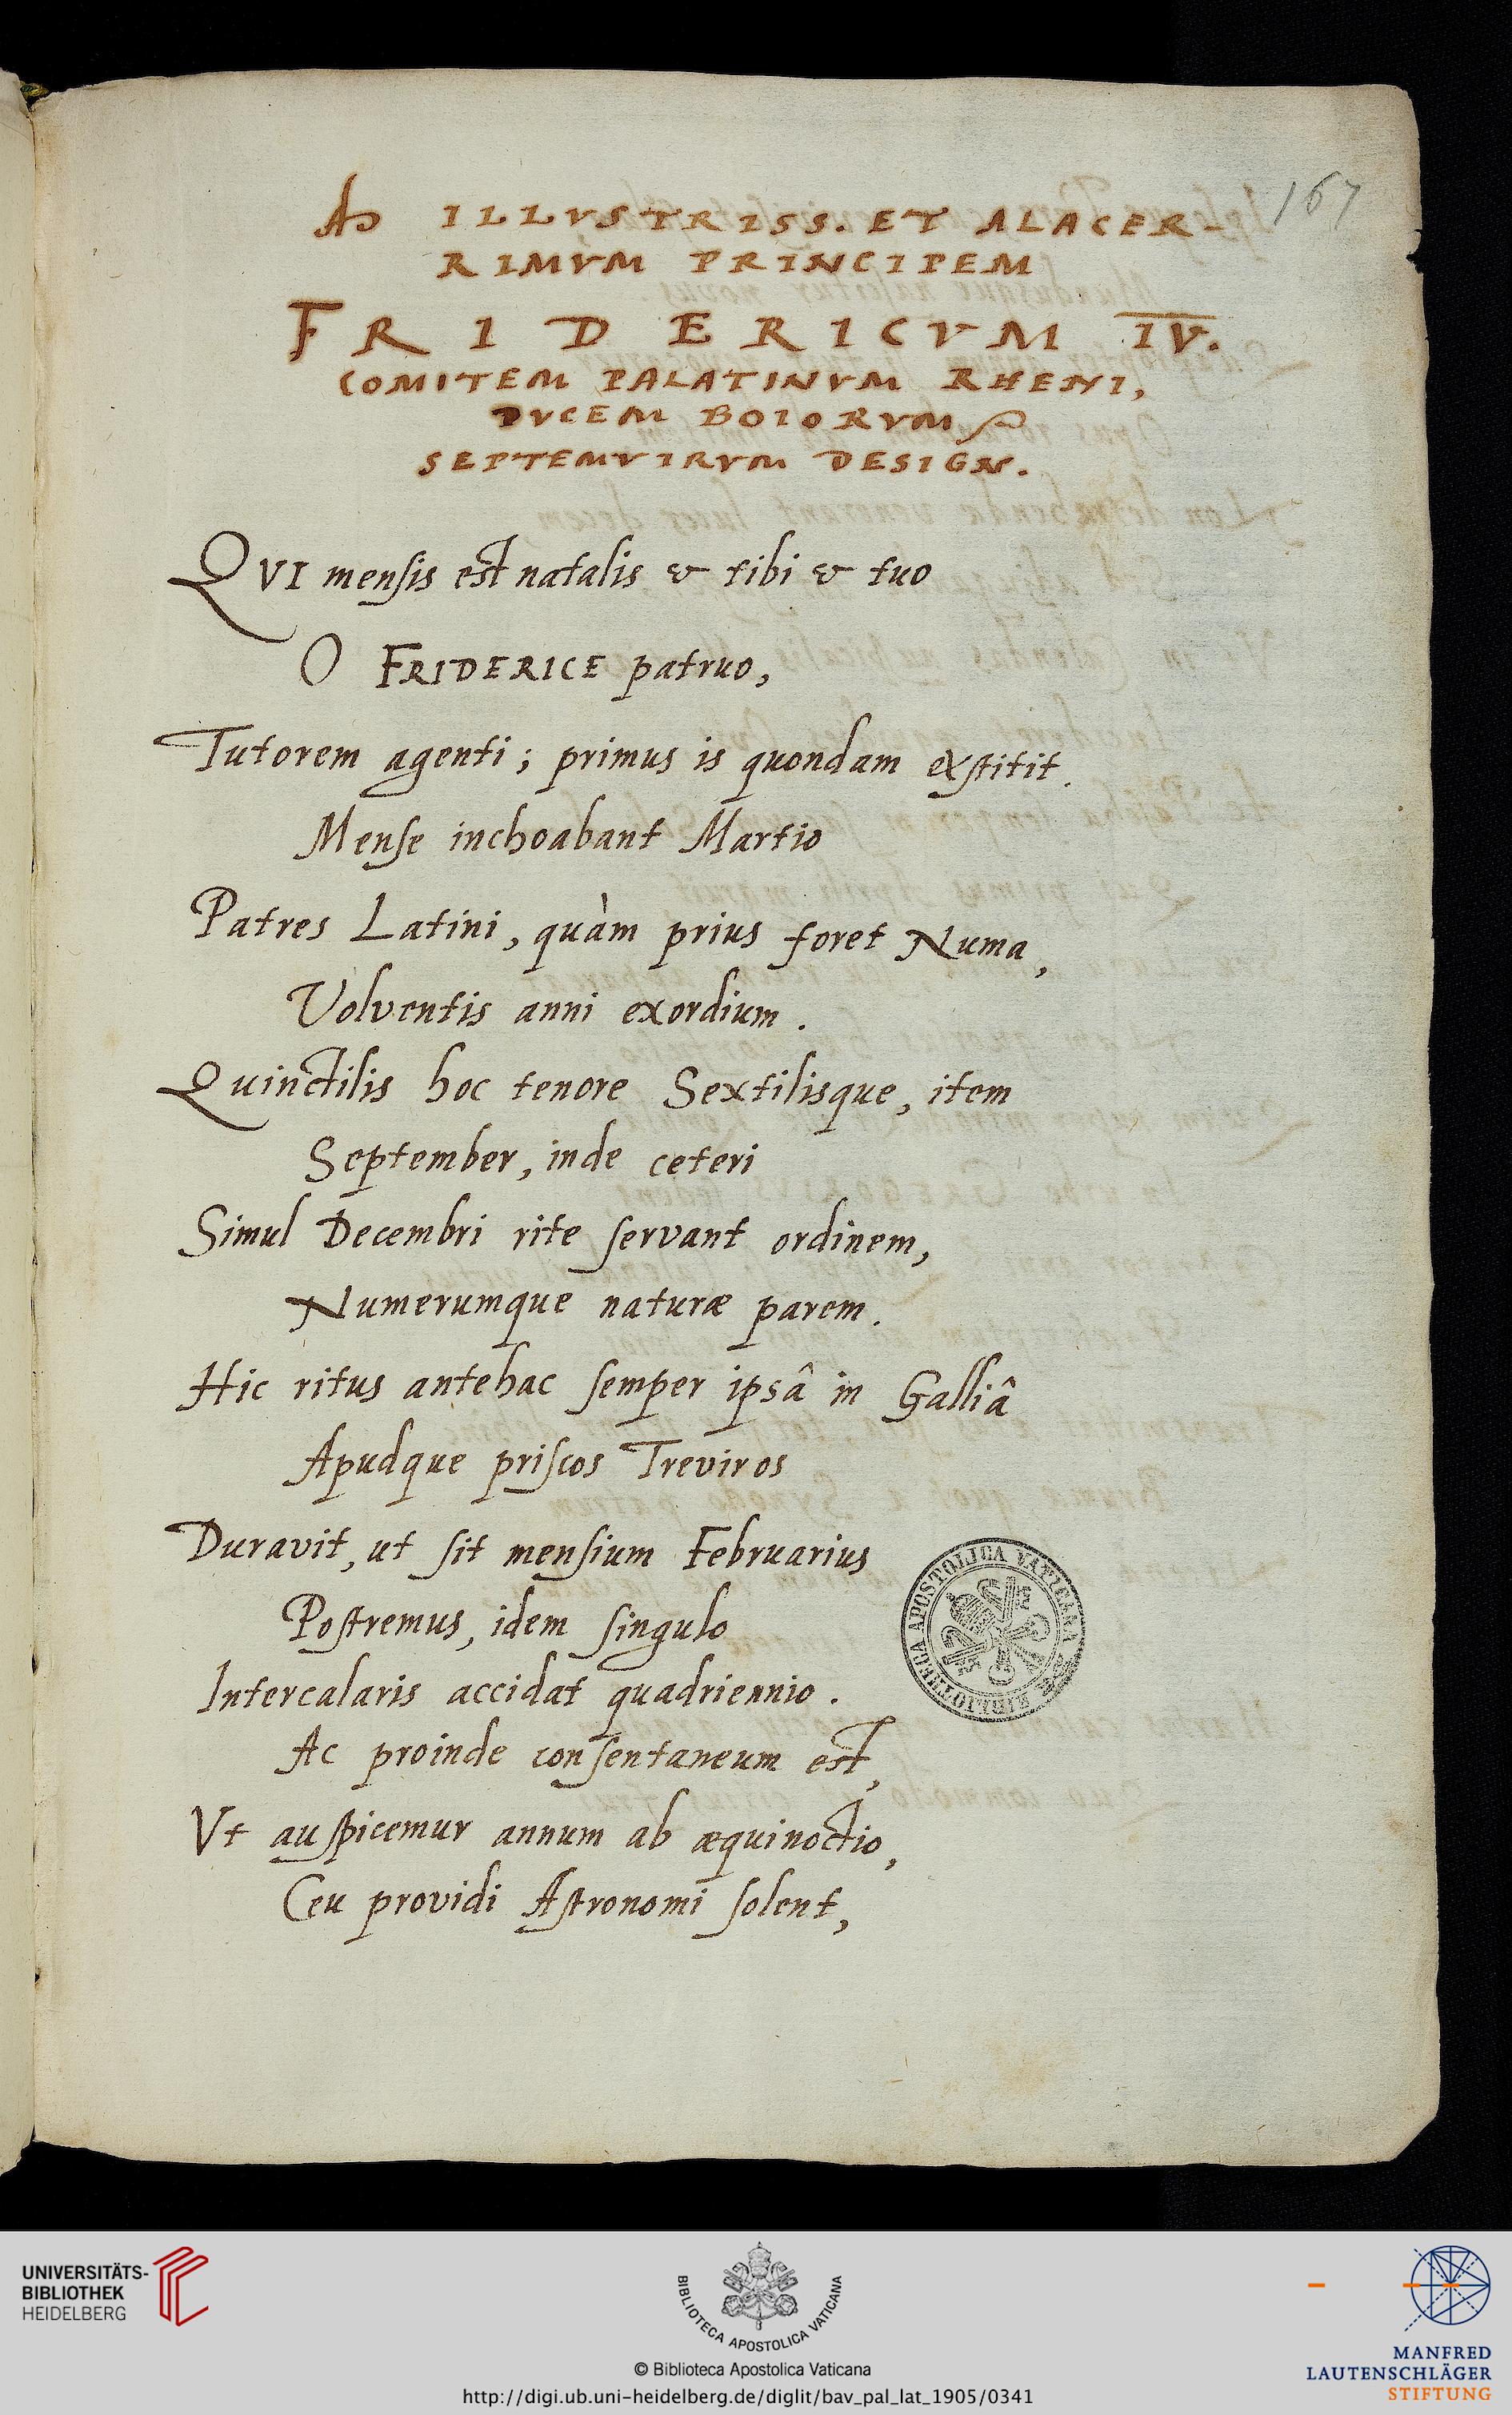 167
AD ILLVSTRISS. ET ALACER-
RIMVM PRINCIPEM
FRIDERICVM IV.
COMITEM PALATINVM RHENI,
DVCEM BOIORVM
SEPTEMVIRVM DESIGN.
QVI mensis est natalis & tibi & tuo
O FRIDERICE patruo,
Tutorem agenti; primus is quondam exstitit.
Mense inchoabant Martio
Patres Latini, quàm prius foret Numa,
Volventis anni exordium.
Quinctilis hoc tenore Sextilisque, item
September, inde ceteri
Simul Decembri rite servant ordinem,
Numerumque naturæ parem.
Hic ritus antehac semper ipsâ in Galliâ
Apudque priscos Treviros
Duravit, ut sit mensium Februarius
Postremus, idem singulo
Intercalaris accidat quadriennio.
Ac proinde consentaneum est,
Vt auspicemur annum ab æquinoctio,
Ceu providi Astronomi solent,
BIBLIOTHECA APOSTOLICA VATICANA
UNIVERSITÄTS-
BIBLIOTHEK
HEIDELBERG
BIBLIOTECA APOSTOLICA VATICANA
© Biblioteca Apostolica Vaticana
http://digi.ub.uni-heidelberg.de/diglit/bav_pal_lat_1905/0341
MANFRED
LAUTENSCHLÄGER
STIFTUNG